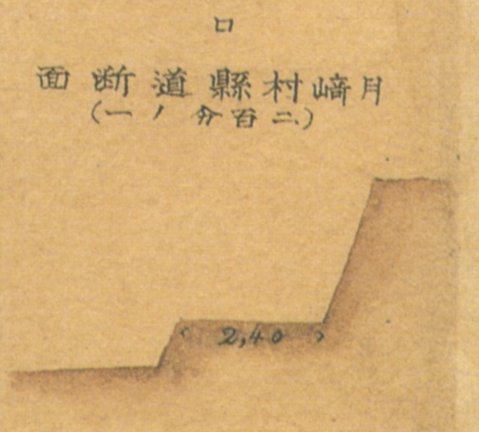 ロ
月﨑村縣道断面
(二百分ノ一)
2,40